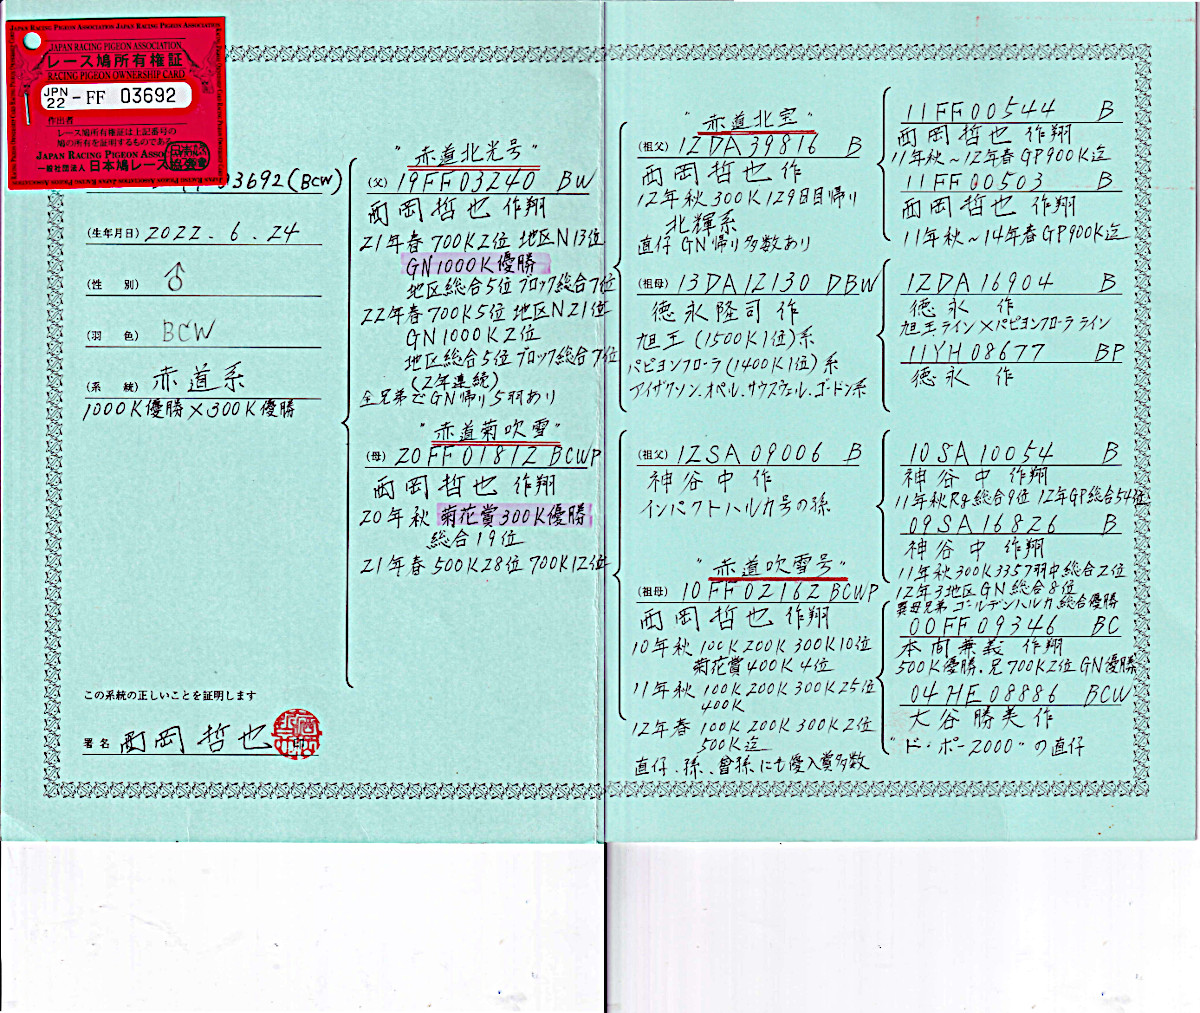 JAPAN RACING PIGEON ASSOCIATION
レース鳩所有権証
RACING PIGEON OWNERSHIP CARD
JPN
22 - FF 03692
作出者
レース鳩所有権証は上記番号の
鳩の所有を証明するものである
JAPAN RACING PIGEON ASSOCIATION
一般社団法人 日本鳩レース協会
03692 (BCW)
(生年月日) 2022. 6. 24
(性 別) ♂
(羽 色) BCW
(系 統) 赤道系
1000K優勝×300K優勝
この系統の正しいことを証明します
署名 西岡 哲也 印
"赤道北光号"
(父) 19FF03240 BW
西岡哲也 作翔
21年春 700K2位 地区N13位
GN1000K優勝
地区総合5位 ブロック総合7位
22年春 700K5位 地区N21位
GN1000K2位
地区総合5位 ブロック総合7位
(2年連続)
全兄弟でGN帰り5羽あり
"赤道菊吹雪"
(母) 20FF01812 BCWP
西岡哲也 作翔
20年秋 菊花賞300K優勝
総合19位
21年春 500K28位 700K12位
"赤道北宝"
(祖父) 12DA39816 B
西岡哲也 作
12年秋 300K129日目帰り
北輝系
直仔GN帰り多数あり
(祖母) 13DA12130 DBW
徳永隆司 作
旭王(1500K1位)系
パピヨンフローラ(1400K1位)系
アイザクソン、オペル、サウスウェル、ゴードン系
(祖父) 12SA09006 B
神谷中 作
インパクトハルカ号の孫
"赤道吹雪号"
(祖母) 10FF02162 BCWP
西岡哲也 作翔
10年秋 100K 200K 300K10位
菊花賞400K4位
11年秋 100K 200K 300K25位
400K
12年春 100K 200K 300K2位
500K迄
直仔、孫、曾孫にも優入賞多数
11FF00544 B
西岡哲也 作翔
11年秋～12年春GP900K迄
11FF00503 B
西岡哲也 作翔
11年秋～14年春GP900K迄
12DA16904 B
徳永 作
旭王ライン×パピヨンフローラ ライン
11YH08677 BP
徳永 作
10SA10054 B
神谷中 作翔
11年秋Rg総合9位 12年GP総合54位
09SA16826 B
神谷中 作翔
11年秋300K3357羽中総合2位
12年3地区GN総合8位
異母兄弟 ゴールデンハルカ総合優勝
00FF09346 BC
本向兼義 作翔
500K優勝、兄700K2位GN優勝
04HE08886 BCW
大谷勝美 作
"ド・ポー2000"の直仔